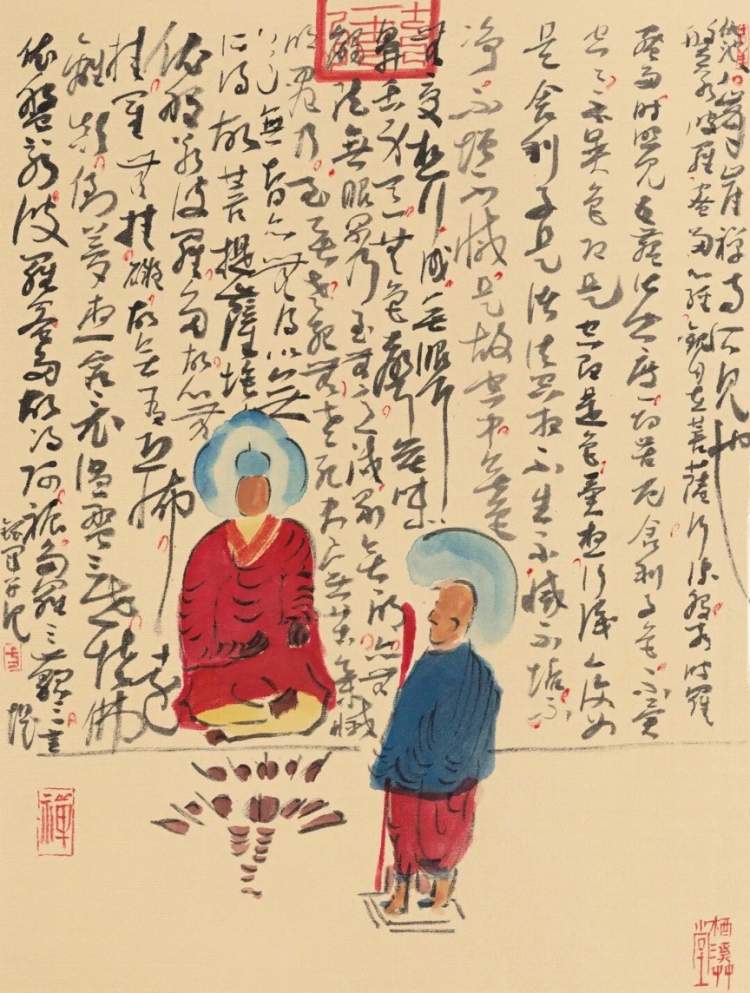 般若波羅蜜多心經觀自在菩薩行深般若波羅
蜜多時照見五蘊皆空度一切苦厄舍利子色不異
空空不異色色即是空空即是色受想行識亦復如
是舍利子是諸法空相不生不滅不垢不
淨不增不減是故空中無色
無受想行識無眼耳
鼻舌身意無色聲香味
觸法無眼界乃至無意識界無無明亦無無
明盡乃至無老死亦無老死盡無苦集滅
道無智亦無得以無
所得故菩提薩埵
依般若波羅蜜多故心無
掛礙無掛礙故無有恐怖遠
離顛倒夢想究竟涅槃三世諸佛
依般若波羅蜜多故得阿耨多羅三藐三菩提
禅
栖溪艸堂